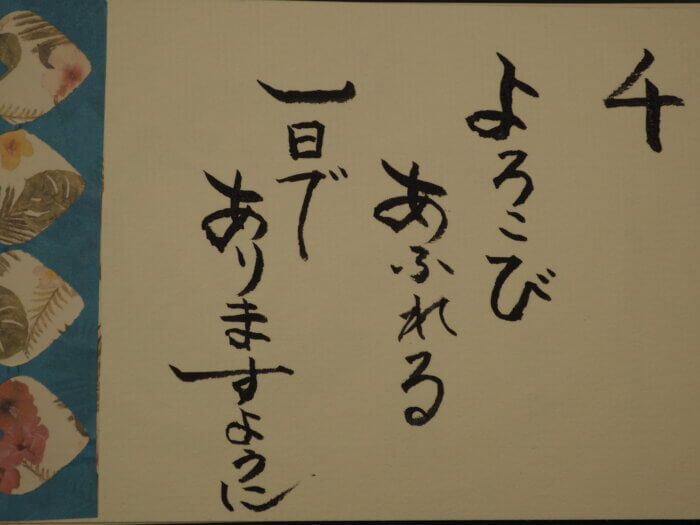 千
よろこび
あふれる
一日で
ありますように